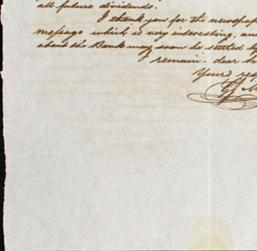 all future dividends.
I thank you for the newspap
message which is very interesting, an
about the Bank may soon be settled by
I remain - dear Si
Your's